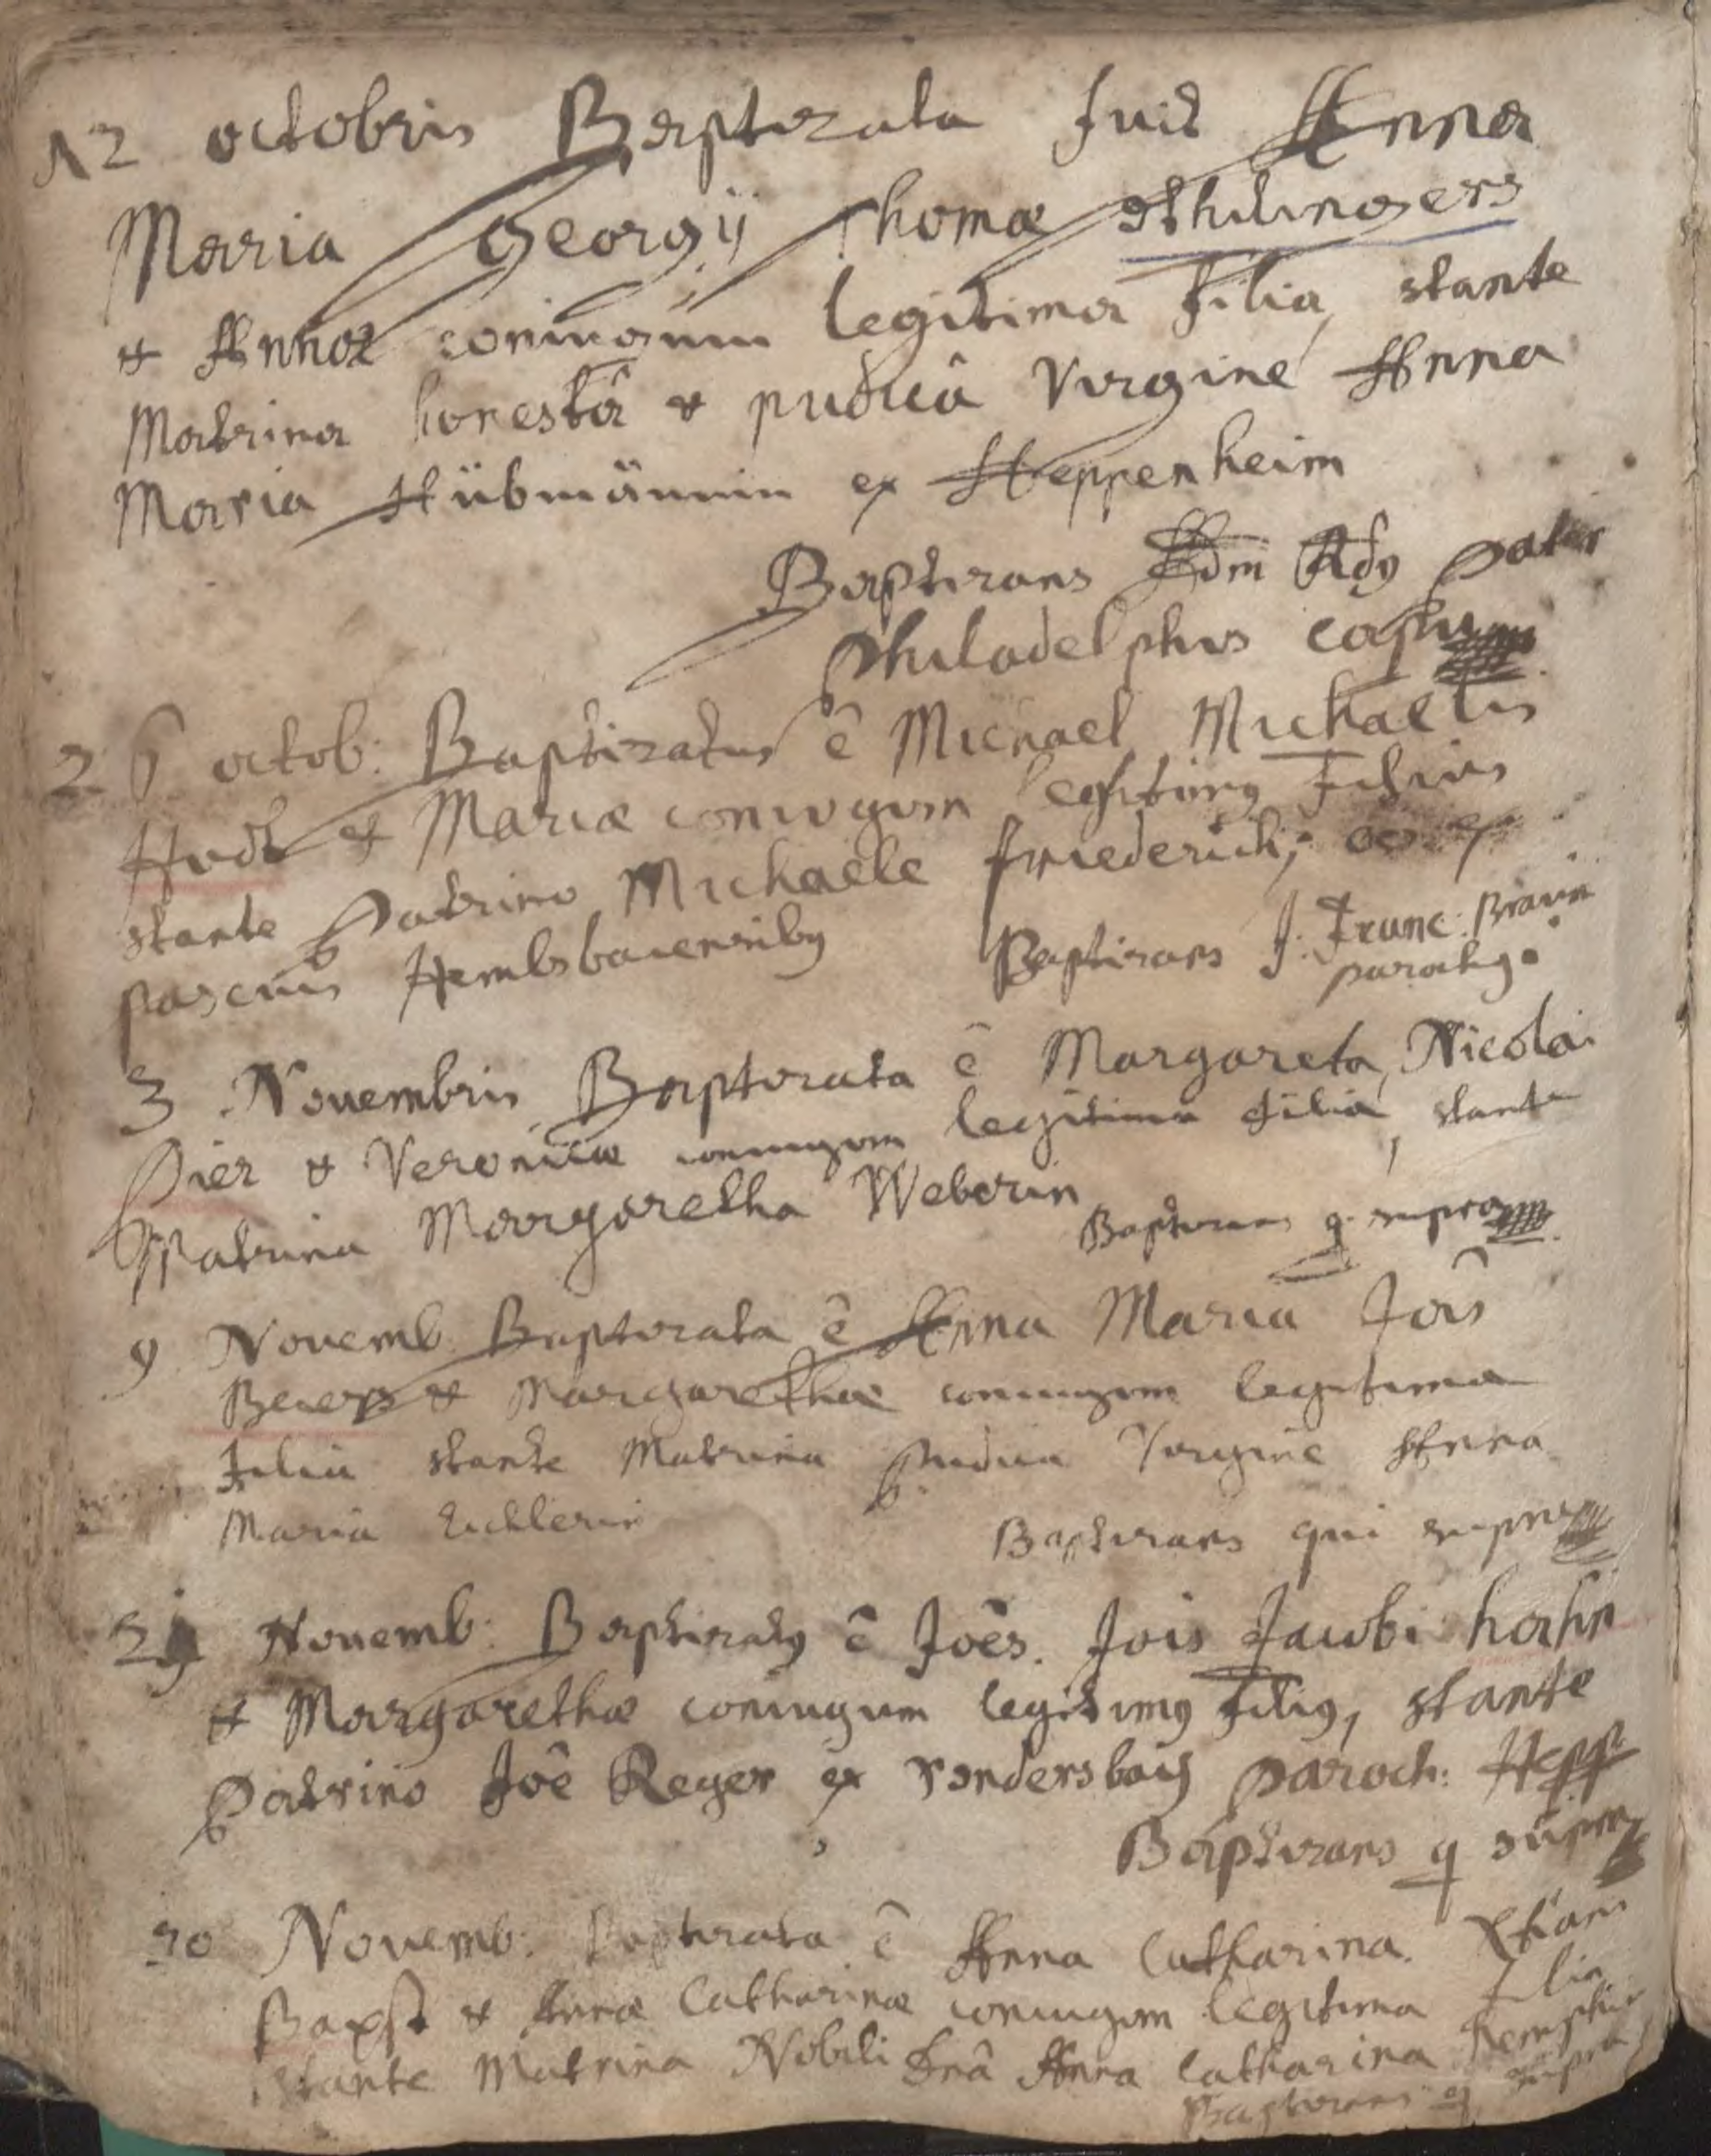 12 octobris Baptizata fuit Anna
Maria Georgÿ Thomæ
& Annæ coniugum legitima filia, stante
Matrina honestâ & pudicâ Virgine Anna
Maria Hübmännin ex Heppenheim
Baptizans Adm Rdg pater
Philadelphus
26 octob: Baptizatus ê Michael Michaelis
& Mariæ coniugum legitimg filius
stante Patrino Michaele friederich;
Hembsbacensibg
Baptizans J. Franc: Braun
parochg.
3 Novembris Baptizata ê Margareta, Nicolai
Pier & Veronicæ coniugum legitima filia, stante
Matrina Margaretha Weberin
Baptizans q. supra
9 Novemb. Baptizata ê Anna Maria Jois
& Margarethæ coniugum legitima
filia stante Matrina pudica Virgine Anna
Maria
Baptizans qui supra
Novemb: Baptizatg ê Joês. Jois Jacobi hahn
& Margarethæ coniugum legitimg filig, stante
Patrino Joê Reger ex paroch: Hepp
Baptizans q supra
30 Novemb. Baptizata ê Anna Catharina.
& Annæ Catharinæ coniugum legitima filia
stante Matrina Nobili Dnâ Anna Catharina
Baptizans q supra